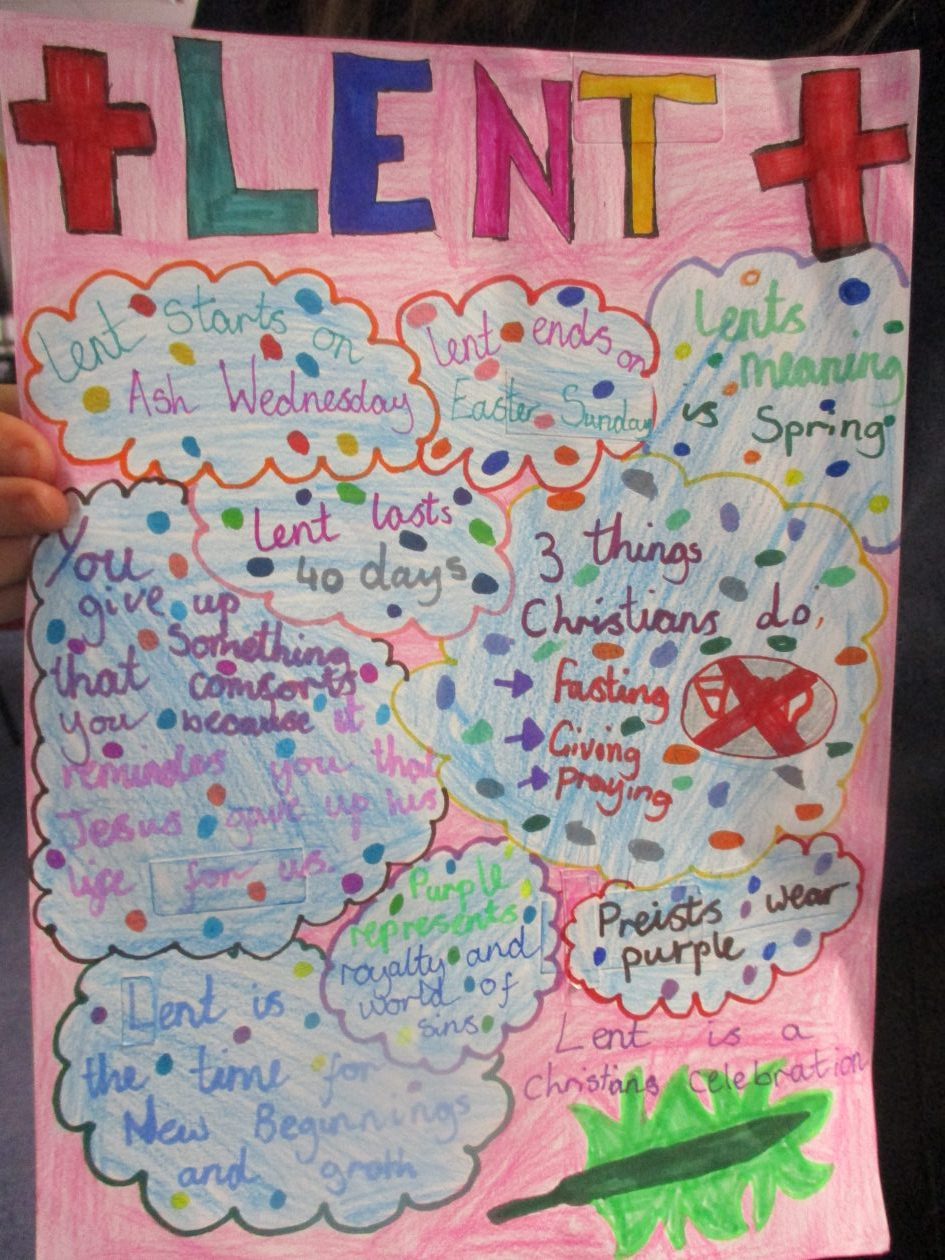 LENT
Lent starts on
Ash Wednesday
Lent ends on
Easter Sunday
Lents
meaning
is Spring
Lent lasts
40 days
You
give up
Something
that comforts
you because it
remindes you that
Jesus gave up his
life for us.
3 things
Christians do,
Fasting
Giving
Praying
Purple
represents
royalty and
world of
sins
Preists wear
purple
Lent is
the time for
New Beginnings
and groth
Lent is a
Christians celebration